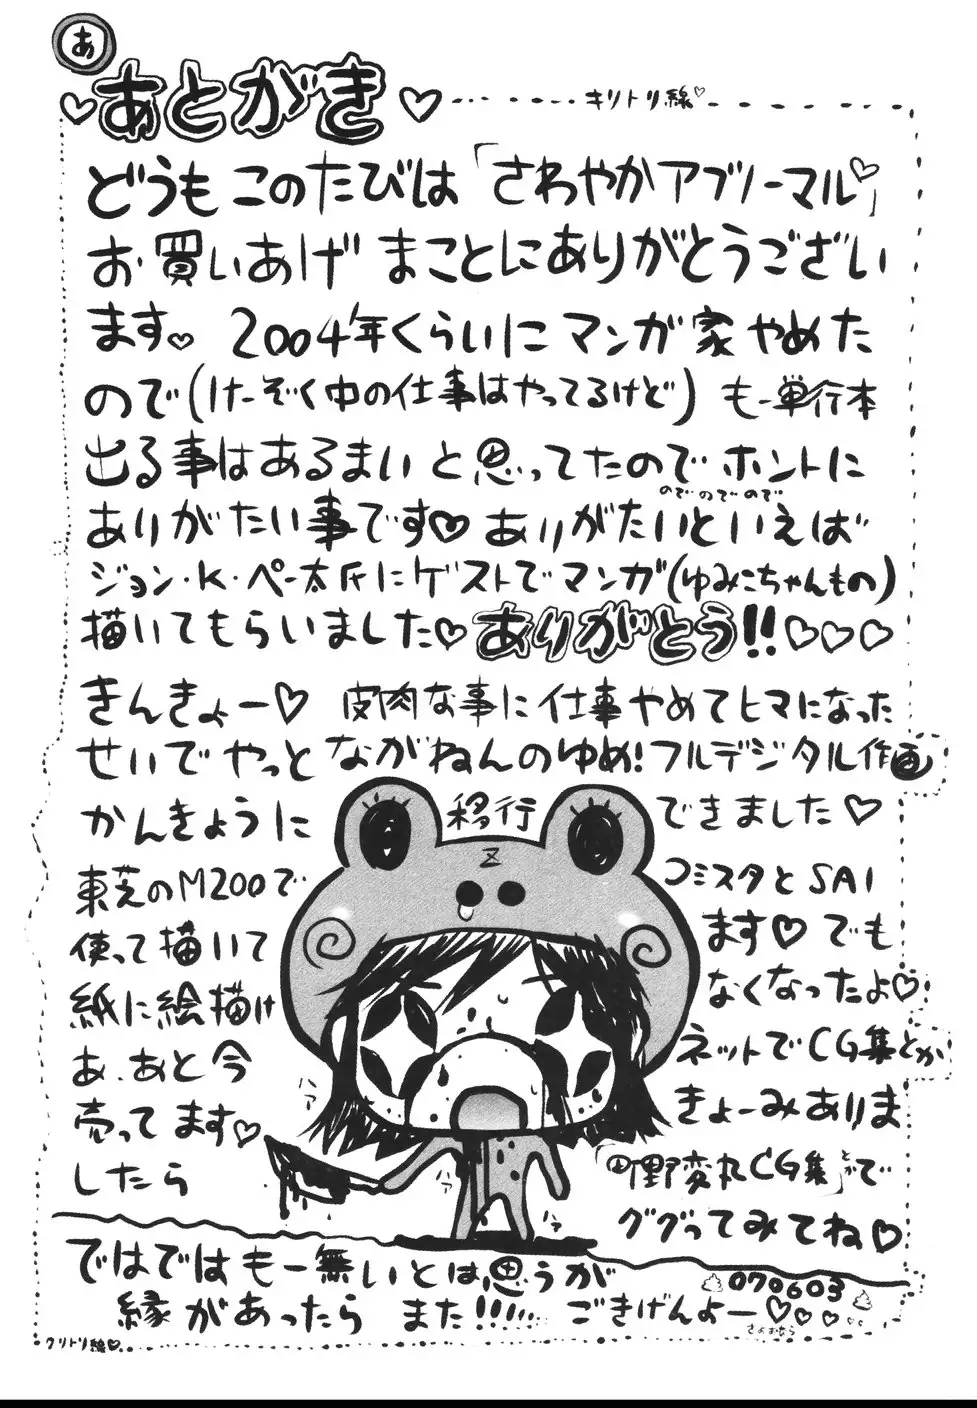 あ
あとがき
キリトリ線
どうも このたびは「さわやかアブノーマル」
お買いあげ まことにありがとうござい
ます 2004年くらいに マンガ家 やめた
ので(けーぞく中の仕事はやってるけど) も一単行本
出る事はあるまい と思ってたので ホントに
のでのでので
ありがたい事です ありがたいといえば
ジョン・K・ペー太氏にゲストでマンガ(ゆみこちゃんもの)
描いてもらいました ありがとう!!
きんきょー 皮肉な事に仕事やめてヒマになった
せいでやっと ながねんのゆめ!フルデジタル作画
かんきょうに 移行 できました
Z
東芝のM200で コミスタとSAI
使って描いて ます でも
紙に絵描け なくなったよ
あ、あと今 ネットでCG集とか
売ってます きょーみありま
したら 「町野変丸CG集」とかで
ググってみてね
ハァ
ハァ
ハァ
ではでは も一無いとは思うが
070603
縁があったら また!!!!! ごきげんよー
さよおなら
クリトリ線